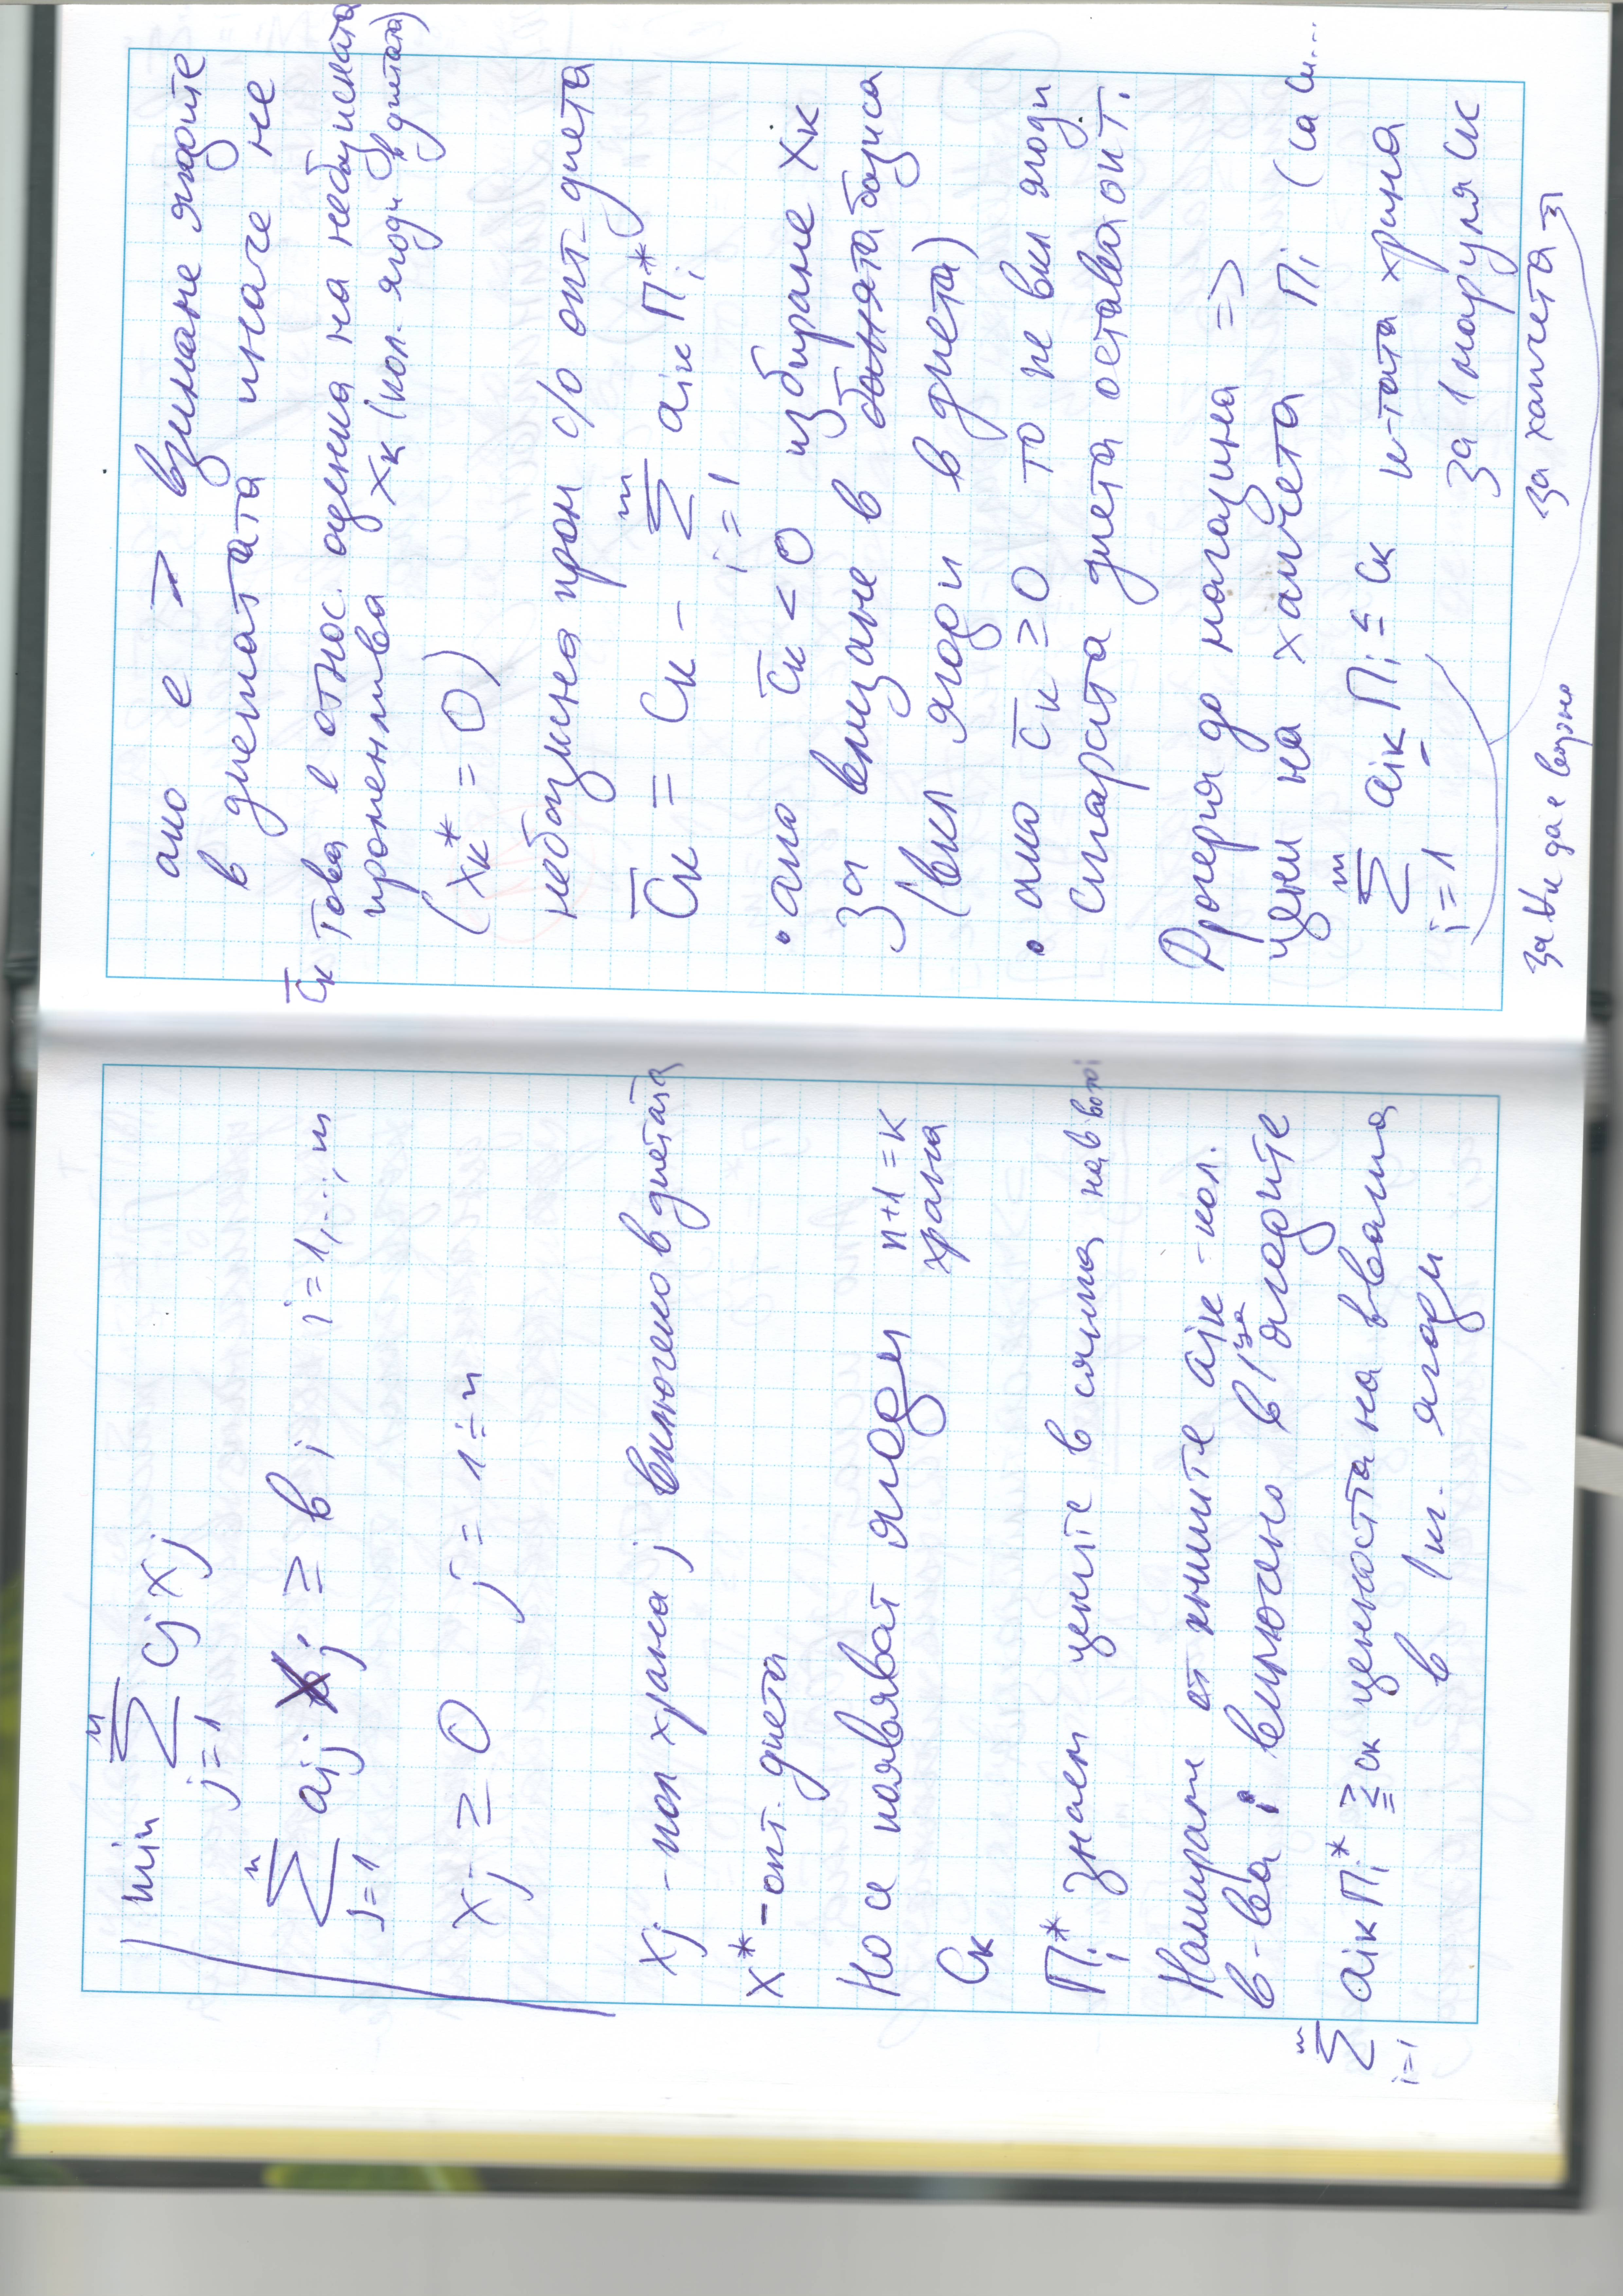 min Σ cj xj
n
j=1
Σ aij xj ≥ bi i=1,...,m
n
j=1
xj ≥ 0 j = 1÷n
xj - кол храна j включено в диетата
x* - опт. диета
Но се появяват ягоди n+1=k
храна
Ck
Πi* знаем цените в сянка на в во i
Намираме от книгите aik - кол.
в-ва i включено в 1ца ягодите
m
Σ aik Πi* ≥ ck ценността на в вата
i=1
в 1 кг. ягоди
ако е > взимаме ягодите
в диетата иначе не
c̄k Това е относ. оценка на небазисната
променлива xk (кол. ягоди в диетата)
(xk* = 0)
небазисна пром с/о опт. диета
C̄k = Ck - Σ aik Πi*
m
i=1
• ако c̄k < 0 избираме xk
за влизане в базиса
(вкл ягоди в диета)
• ако c̄k ≥ 0 то не вкл ягоди
старата диета остава опт.
Дрогерия до магазина =>
цени на хапчета Πi (са
m
Σ aik Πi ≤ ck к-тата храна
i=1
за 1 маруля ck
за да е вярно
за хапчета